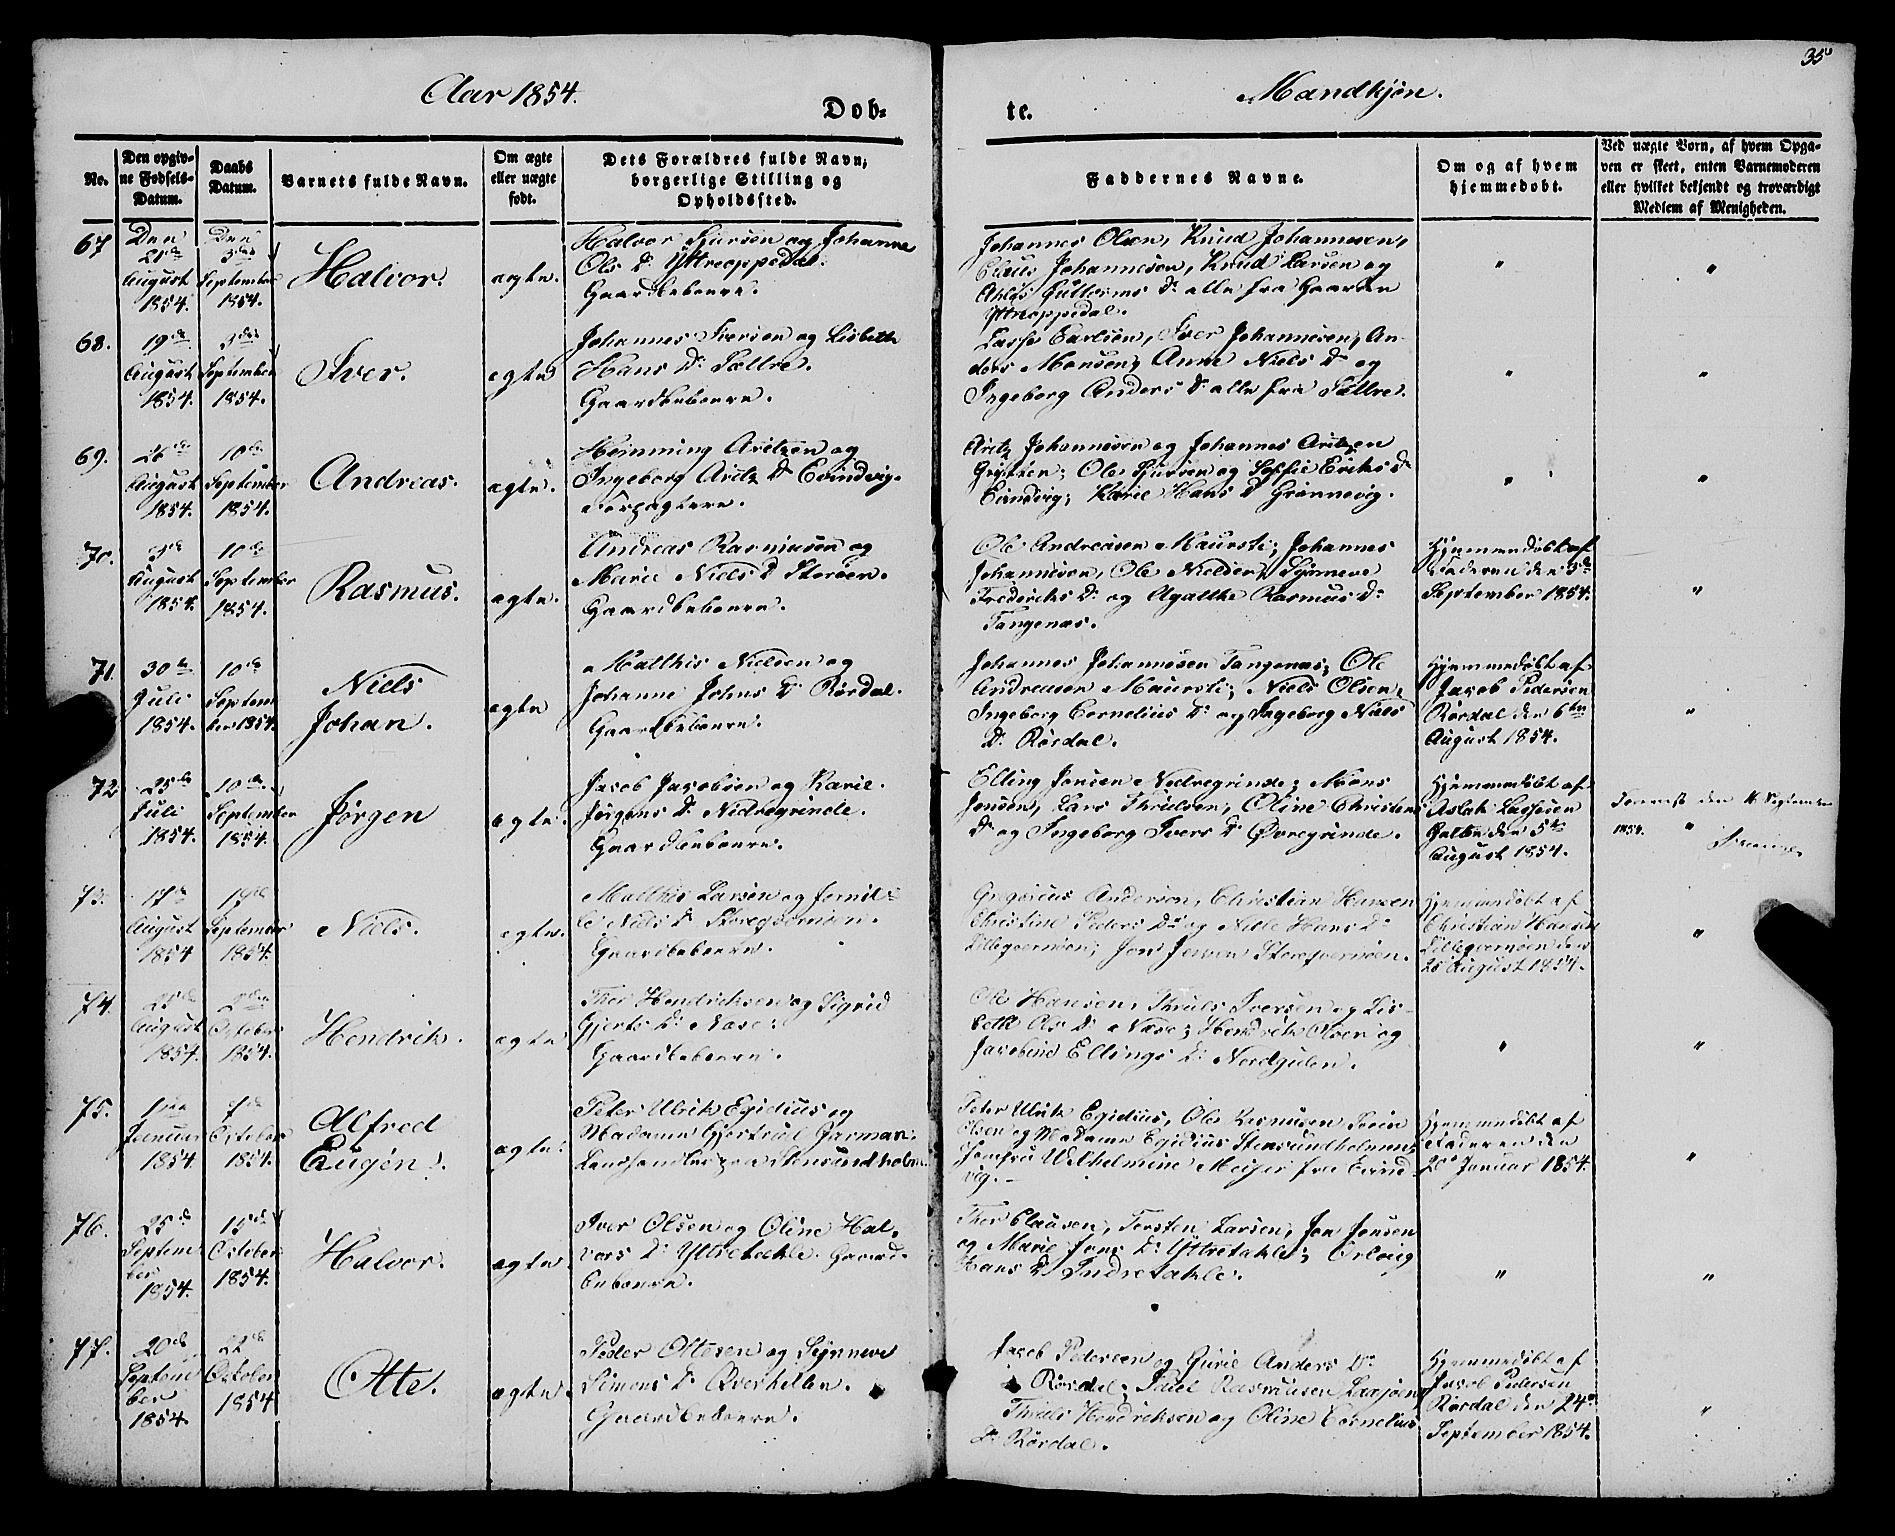 35
Aar 1854.
Mandkjøn.
Døb-
te.
No.
Den opgivne Fødsels-Datum.
Daabs Datum.
Barnets fulde Navn.
Om ægte eller uægte født.
Dets Forældres fulde Navn, borgerlige Stilling og Opholdssted.
Faddernes Navne.
Om og af hvem hjemmedøbt.
Ved uægte Børn, af hvem Opgaven er skeet, enten Barnemoderen eller hvilket bekjendt og troværdigt Medlem af Menigheden.
67
Den 21de August 1854.
Den 3die September 1854.
Halvor.
ægte.
Halvor Sjursen og Johanne
Ols D. Yttreoppedal.
Gaardbeboere.
Johannes Olsen, Knud Johannesen,
Claus Johannesen, Knud Larsen og
Guttorms D. alle fra Gaarden
Yttreoppedal.
"
"
68.
19de August 1854.
3die September 1854.
Iver.
ægte
Johannes Iversen og Lisbeth
Hans D. Sættre.
Gaardbeboere.
Lasse Larsen, Iver Johannesen, An-
ders Monsen, Anne Niels D. og
Ingeborg Anders D. alle fra Sættre.
"
"
69.
26de August 1854.
10de September 1854.
Andreas.
ægte.
Heming Aritzen og
Ingeborg Aritz D. Evindvig.
Forpagtere.
Aritz Johannesen og Johannes Aritzen
Ole Sjursen og Sophie Eriks D.
Evindvig; Karie Hans D. Grønnevig.
"
"
70.
3de August 1854.
10de September 1854.
Rasmus.
ægte.
Andreas Rasmusen og
Marie Niels D. Storøen.
Gaardbeboere.
Ole Andreasen Maursti; Johannes
Johannesen, Ole Nielsen, Synneve
Frederiks D. og Agathe Rasmus D.
Tangenæs.
Hjemmedøbt af
Faderen den 3de
September 1854.
"
71.
30te Juli 1854.
10de September 1854.
Niels
Johan.
ægte
Matthis Nielsen og
Johanne Johns D. Rørdal.
Gaardbeboere.
Johannes Johannesen Tangenæs; Ole
Andreasen Maursti; Niels Olsen,
Ingeborg Cornelius D. og Ingeborg Niels
D. Rørdal.
Hjemmedøbt af
Jacob Pedersen
Rørdal den 6te
August 1854.
"
72
25de Juli 1854.
10de September 1854.
Jørgen
ægte
Jacob Jacobsen og Karie
Jørgens D. Nedregrinde.
Gaardbeboere.
Elling Jensen Nedregrinde; Mons
Jensen, Lars Thrulsen, Oline Christens
D. og Ingeborg Ivers D. Øvregrinde.
Hjemmedøbt af
Aslak Lassesen
den 5te
August 1854.
den
1854.
"
73.
17de August 1854
17de September 1854.
Niels.
ægte.
Matthis Larsen og
Niels D.
Gaardbeboere.
Gregorius Andersen, Christian Hansen
Christine Peders D. og Hans D.
Jon Jensen
Hjemmedøbt af
Christian Hansen
den
20 August 1854.
"
74.
25de August 1854.
October 1854.
Hendrik.
ægte
Thor Hendriksen og Sigrid
Gjerts D. Næse.
Gaardbeboere.
Ole Hansen, Thruls Iversen og Lis-
beth Ols D. Næse; Hendrik Olsen og
Jacobine Ellings D. Nordgulen.
"
"
75.
Januar 1854.
October 1854.
Alfred
Eugen.
ægte.
Peter Ulrik Egidius og
Madame Gjertrud Garman.
Landhandler paa Stensundholm
Peter Ulrik Egidius, Ole Rasmusen
Olsen og Madame Egidius Stensundholmen;
Jomfru Wilhelmine Meijer fra Evind-
vig.
Hjemmedøbt af
Faderen den
20 Januar 1854.
"
76.
25de September 1854.
15de October 1854.
Halvor.
ægte.
Iver Olsen og Oline Hal-
vors D. Yttretakle. Gaard-
beboere.
Thor Clausen, Torsten Larsen, Jon Jonsen
og Marie Jons D. Yttretakle;
Hans D. Indretakle.
"
"
77.
20de September 1854.
22de October 1854
Otte.
ægte.
Peder Ottesen og Synneve
Simons D.
Gaardbeboere.
Jacob Pedersen og Gurie Anders D.
Rørdal; Rasmusen
Thruls Hendriksen og Oline Cornelius
D. Rørdal.
Hjemmedøbt af
Jacob Pedersen
Rørdal den 24de
September 1854.
"